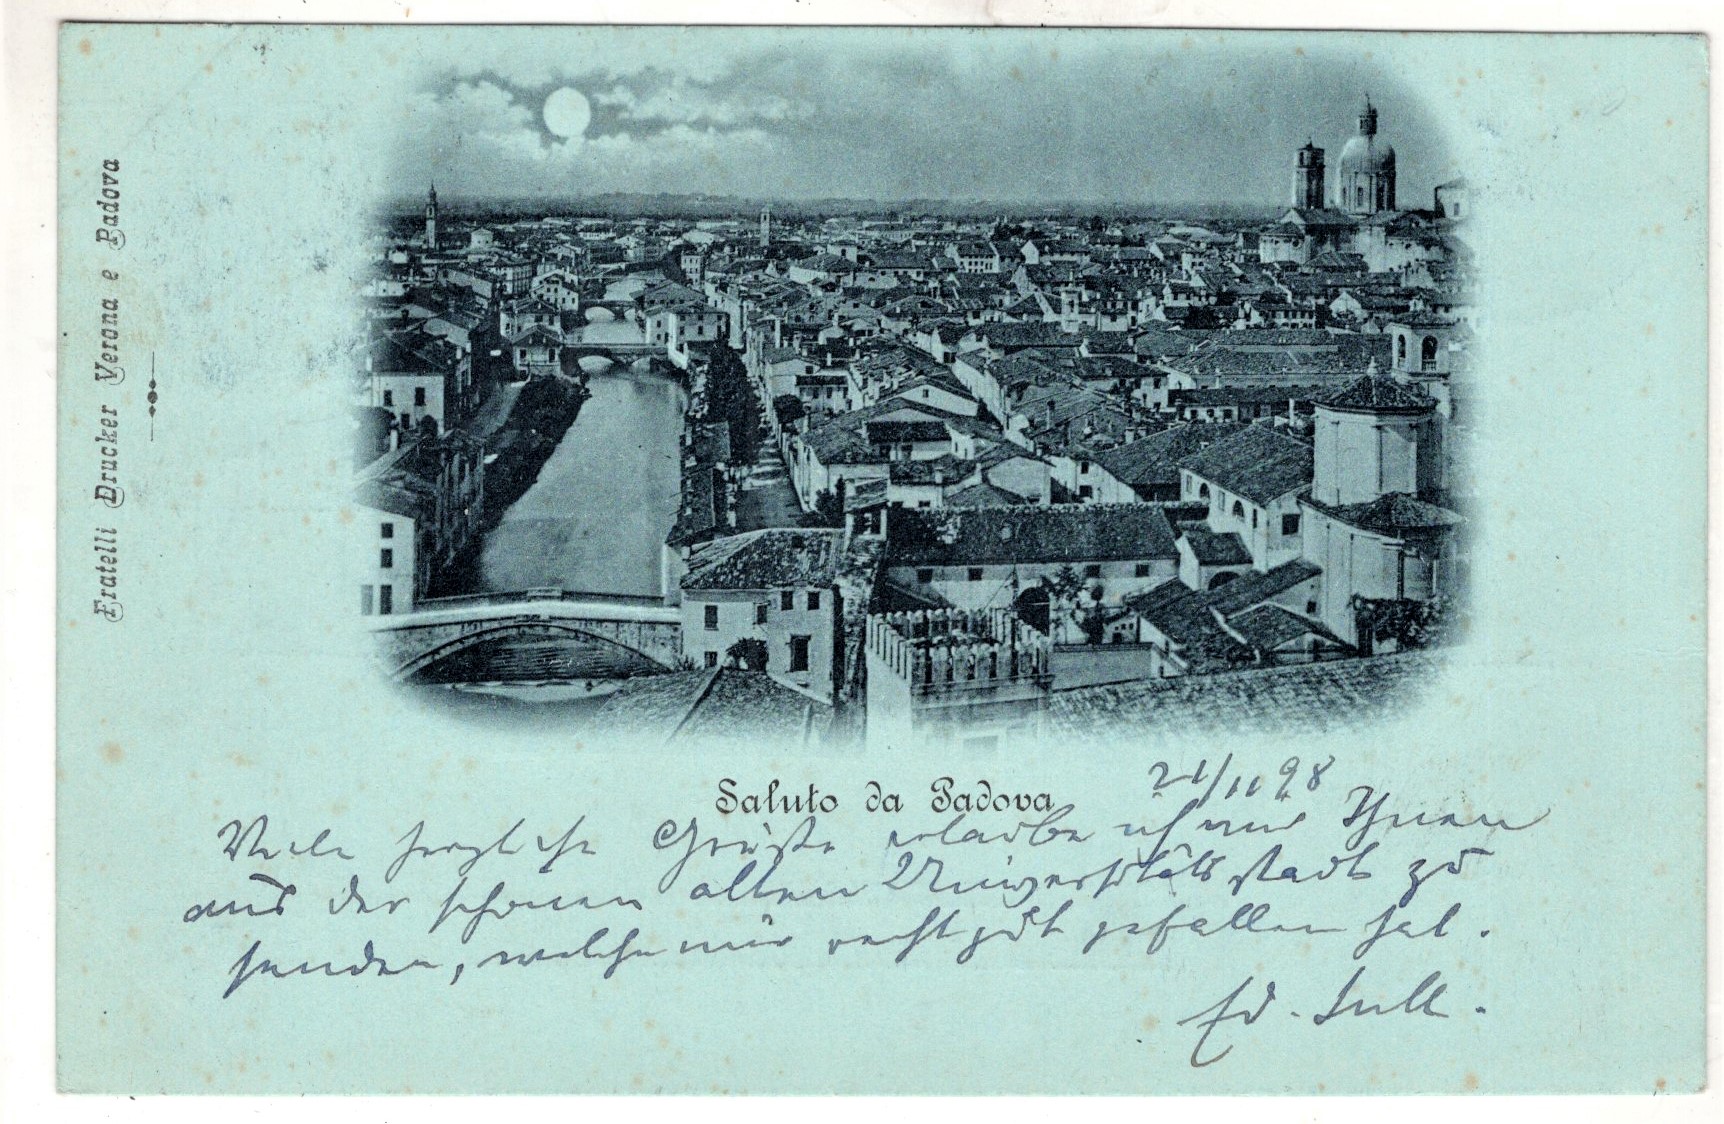 Fratelli Drucker Verona e Padova
Saluto da Padova
21/11 98
Viele herzliche Grüße erlaube ich mir Ihnen
aus der schönen alten Universitätsstadt zu
senden, welche mir recht gut gefallen hat.
Ed.